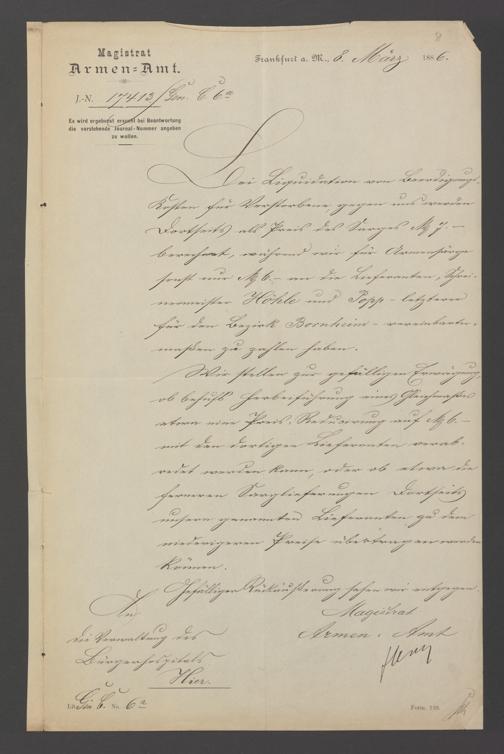 8
Magistrat
Armen=Amt.
Frankfurt a. M., 8. März 1886.
J.-N. 17413/Gen. C 6a
Es wird ergebenst ersucht bei Beantwortung
die vorstehende Journal-Nummer angeben
zu wollen.
Bei Liquidation von Beerdigungs-
kosten für Verstorbene gegen uns werden
dortseits als Preis des Sarges M 7.–
berechnet, während wir für Armensärge
sonst nur M 6.– an die Lieferanten, Schrei-
nermeister Höhle und Popp – letzterer
für den Bezirk Bornheim – vereinbarter-
maßen zu zahlen haben.
Wir stellen zur gefälligen Erwägung,
ob behufs Herbeiführung eines Gleichmaßes
etwa eine Preis-Reducirung auf M 6.–
mit den dortigen Lieferanten verab-
redet werden kann, oder ob etwa die
ferneren Sarglieferungen dortseits
unsern genannten Lieferanten zu dem
niedrigeren Preise übertragen werden
können.
Gefälliger Rückäußerung sehen wir entgegen.
Magistrat
Armen-Amt
An
die Verwaltung des
Bürgerhospitals
Hier.
Lit. Gen. C. No. 6a
Form. 139.